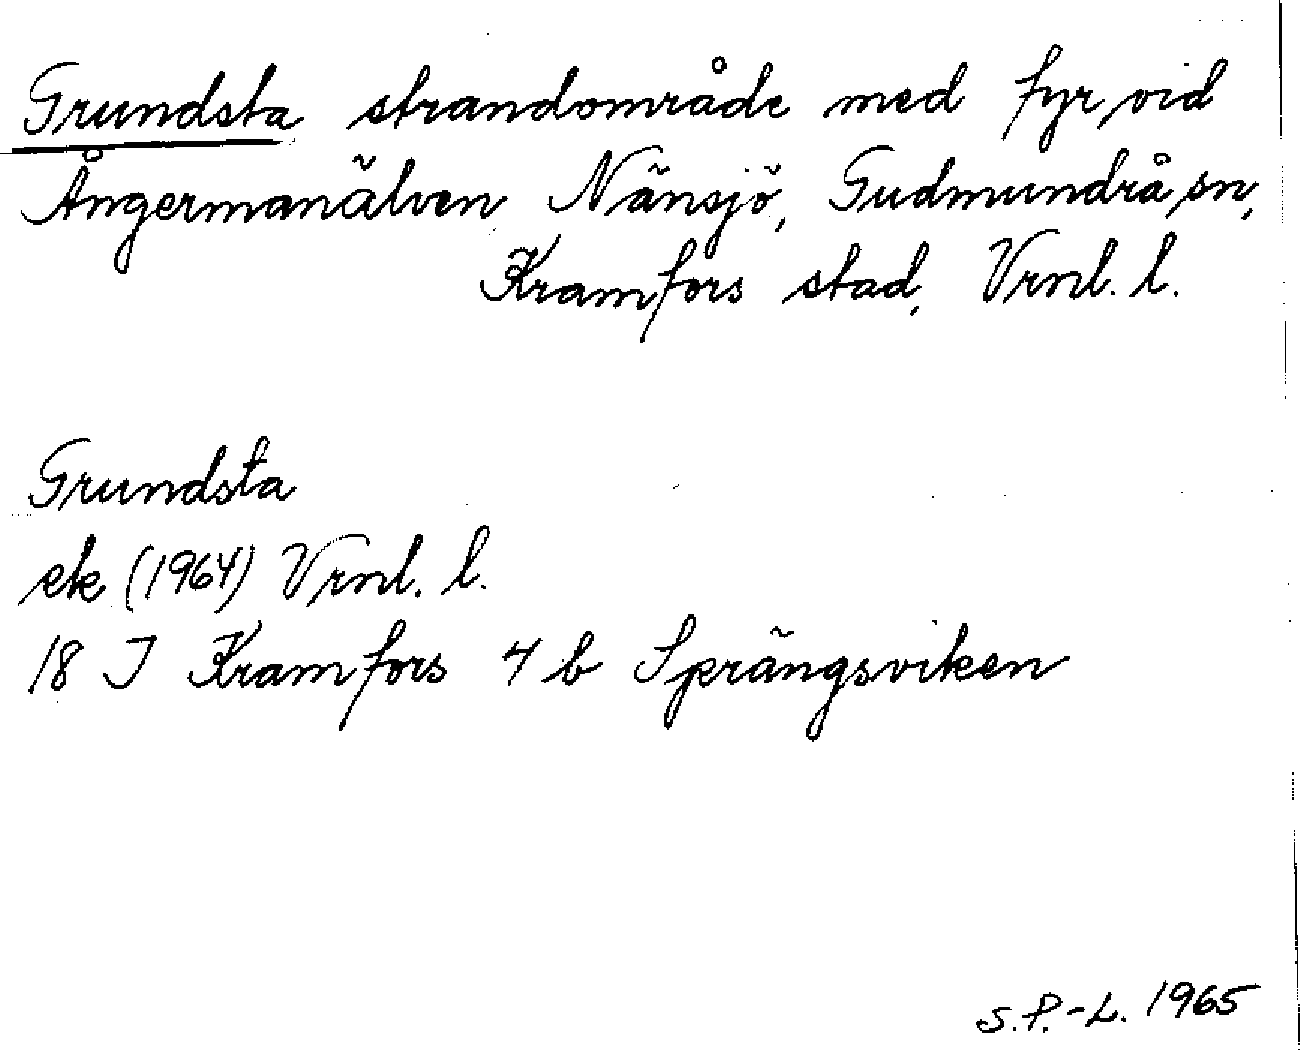 Grundsta strandområde med fyr vid
Ångermanälven Nänsjö, Gudmundrå sn,
Kramfors stad, Vrnl. l.
Grundsta
ek (1964) Vrnl. l.
18 I Kramfors 4 b Sprängsviken
S.P.-L. 1965